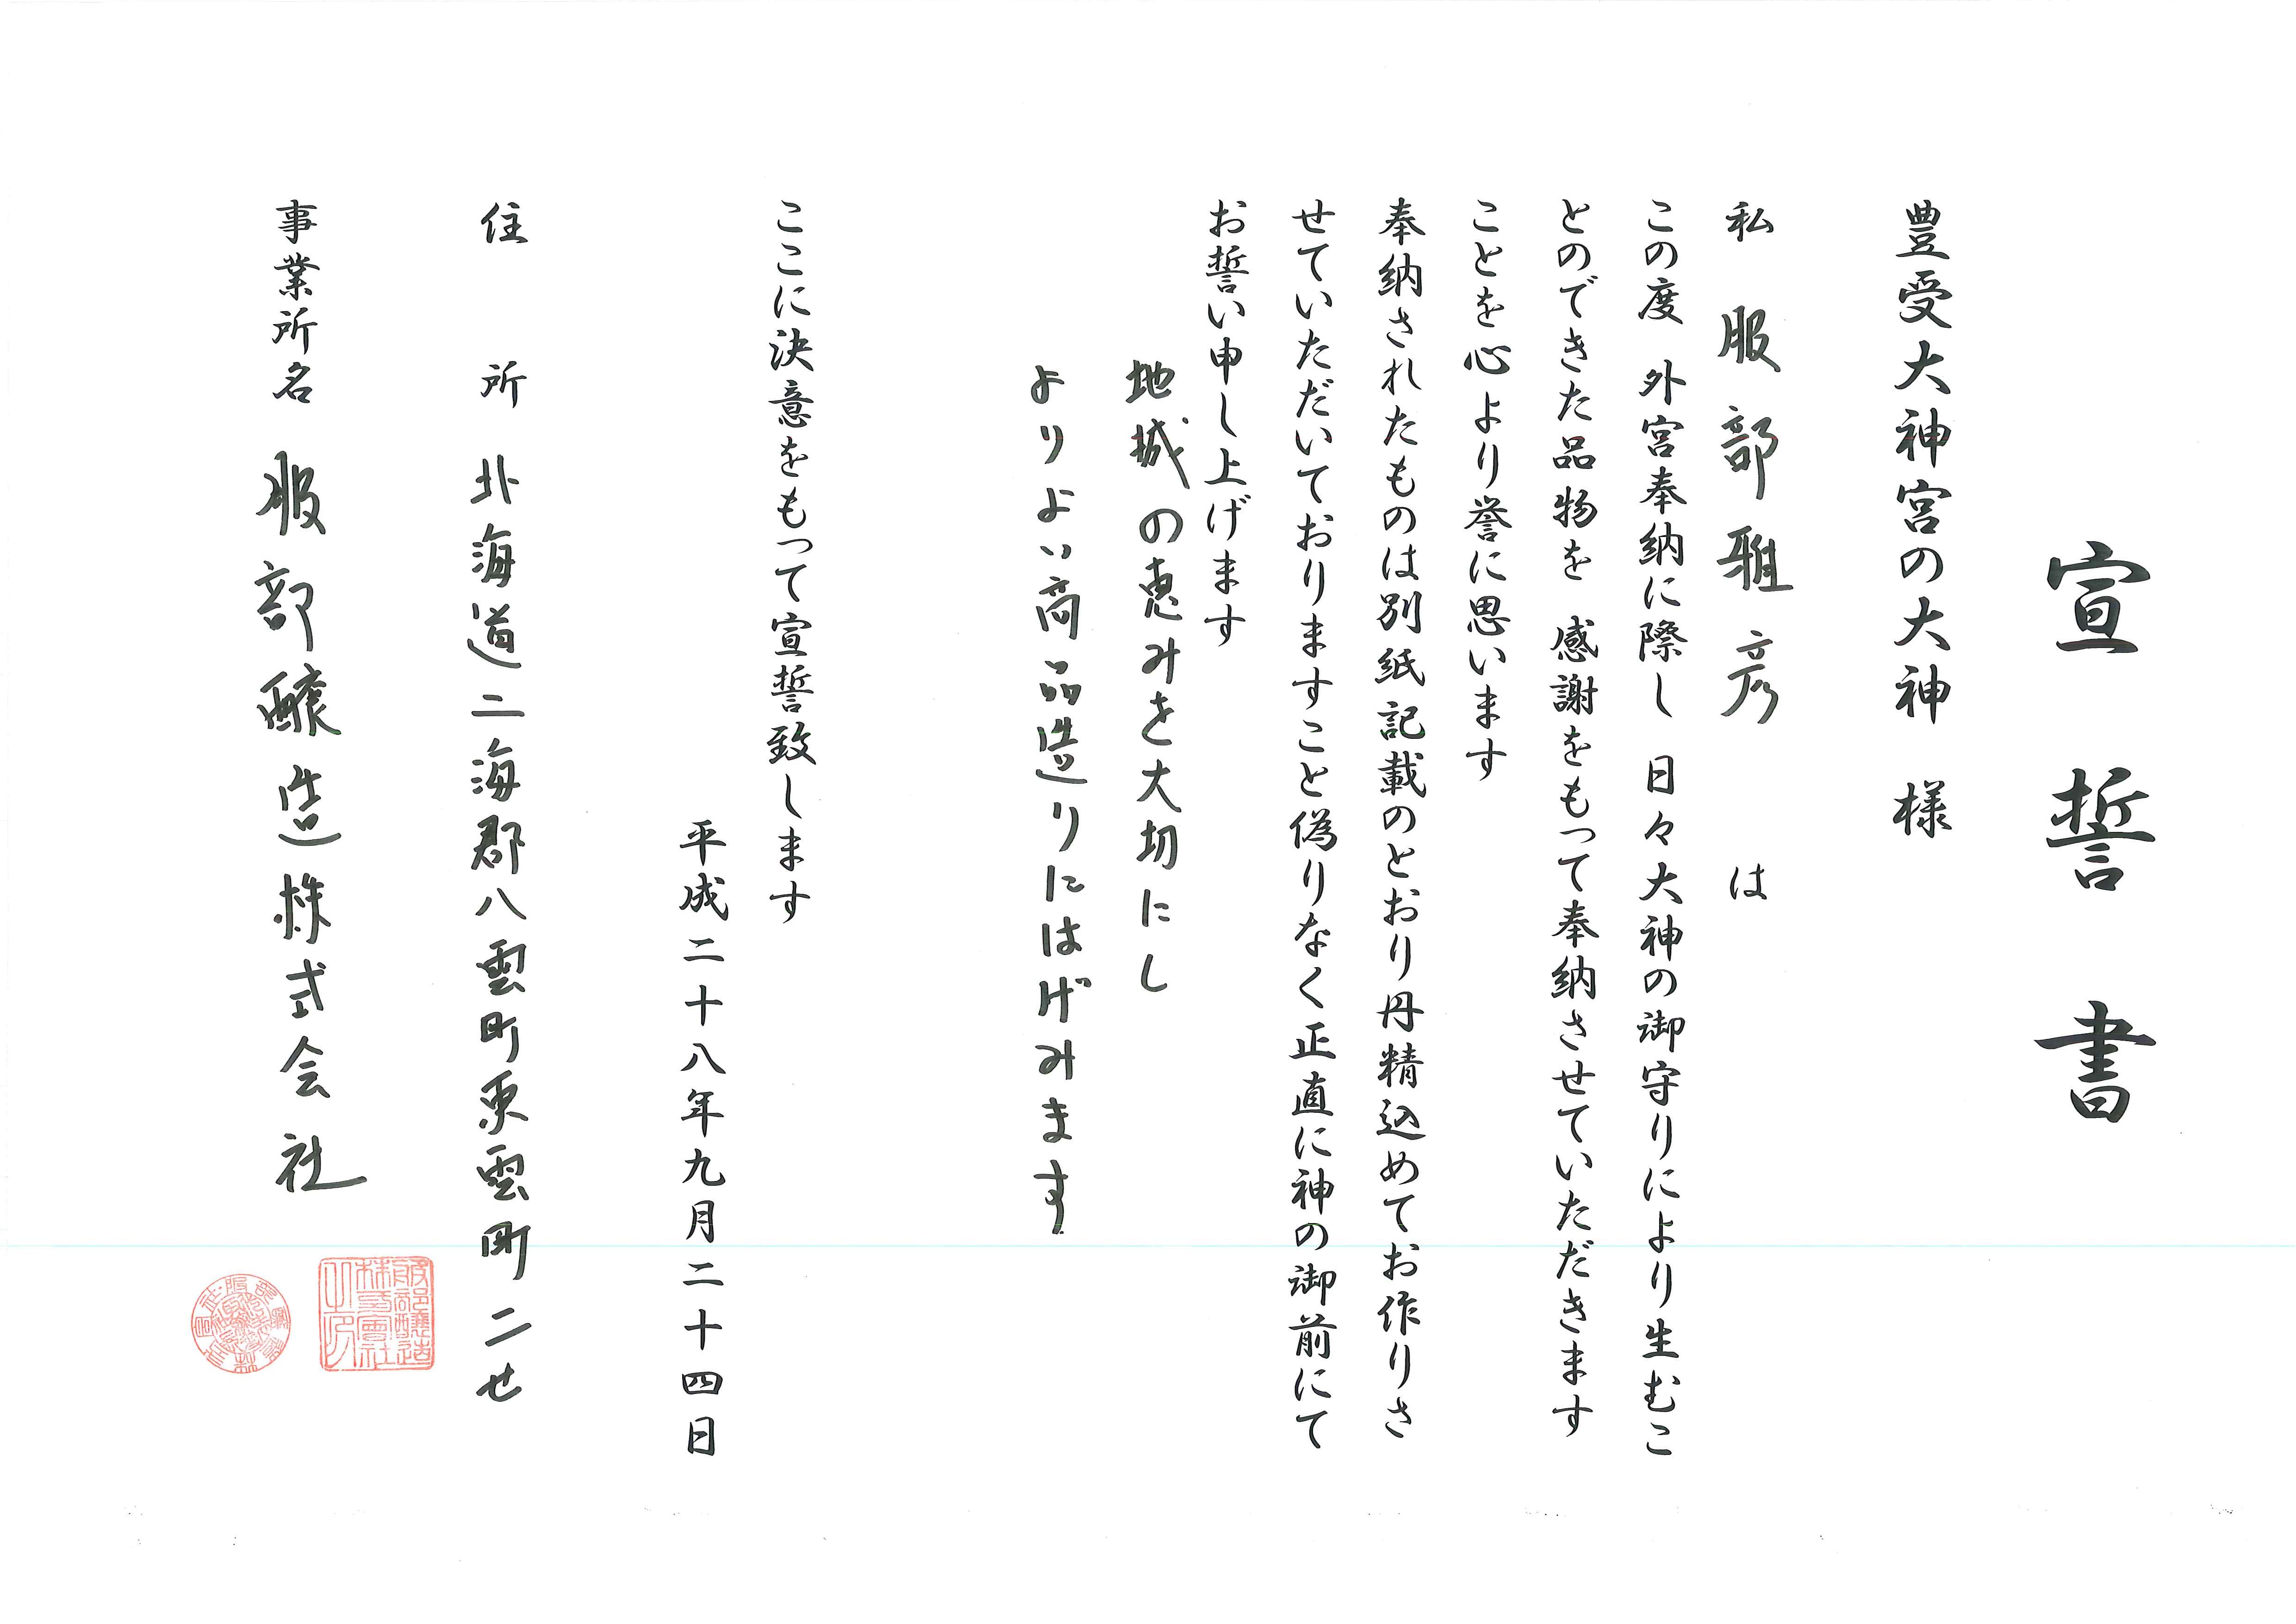 宣誓書
豊受大神宮の大神 様
私 服部雅彦 は
この度 外宮奉納に際し 日々大神の御守りにより生むこ
とのできた品物を 感謝をもって奉納させていただきます
ことを心より誉に思います
奉納されたものは別紙記載のとおり丹精込めてお作りさ
せていただいておりますこと偽りなく正直に神の御前にて
お誓い申し上げます
地域の恵みを大切にし
よりよい商品造りにはげみます
ここに決意をもって宣誓致します
平成二十八年九月二十四日
住所 北海道二海郡八雲町東雲町二七
事業所名 服部醸造株式会社
服部醸造株式會社之印